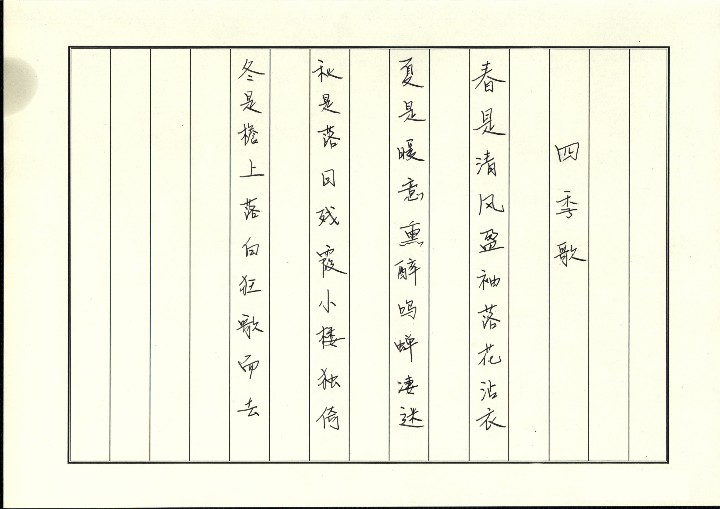 四季歌
春是清风盈袖落花沾衣
夏是暖意熏醉鸣蝉凄迷
秋是落日残霞小楼独倚
冬是檐上落白狂歌而去